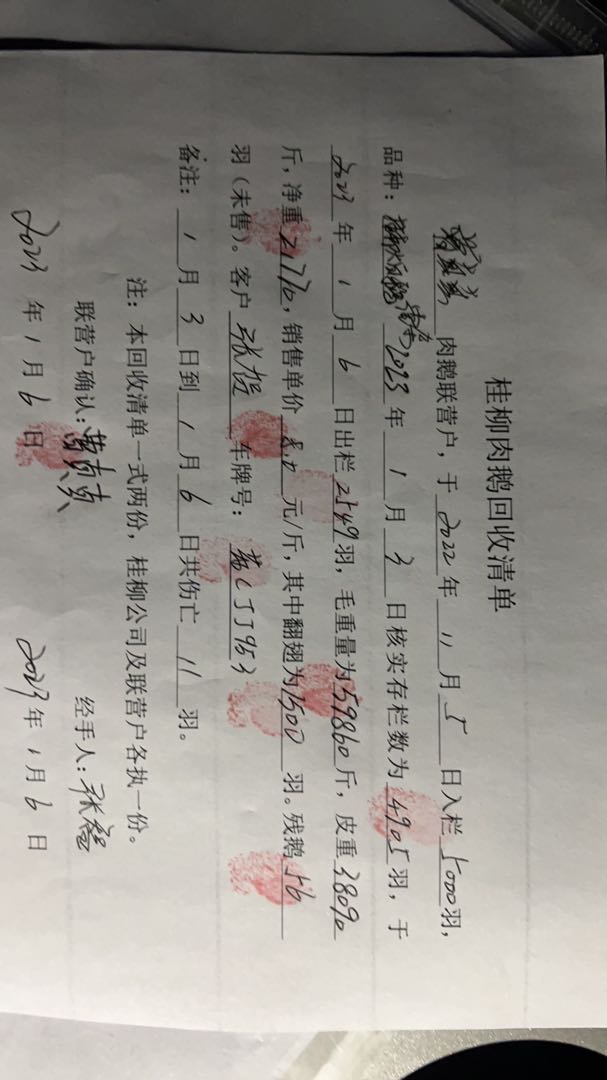 桂柳肉鹅回收清单
肉鹅联营户，于2022年11月5日入栏5000羽，
品种：2023年1月3日核实存栏数为4905羽，于
2023年1月6日出栏2549羽，毛重量为59860斤，皮重38090
斤，净重21770，销售单价8.0元/斤，其中翻翅为1500羽。残鹅56
羽（未售）。客户张 车牌号：CJJ953
备注：1月3日到1月6日共伤亡11羽。
注：本回收清单一式两份，桂柳公司及联营户各执一份。
联营户确认： 经手人：张
2023年1月6日 2023年1月6日